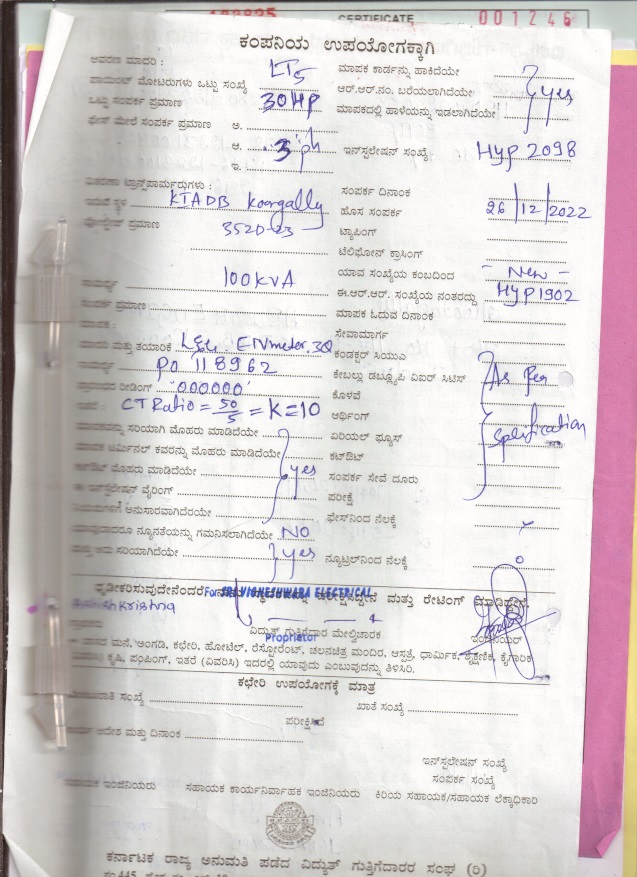 CERTIFICATE 001246
ಕಂಪನಿಯ ಉಪಯೋಗಕ್ಕಾಗಿ
ಆವರಣ ಮಾದರಿ : LT5 ಮಾಪಕ ಕಾರ್ಡನ್ನು ಹಾಕಿದೆಯೇ
ಪಾಯಿಂಟ್ ಮೋಟರುಗಳು ಒಟ್ಟು ಸಂಖ್ಯೆ ಆರ್.ಆರ್.ನಂ. ಬರೆಯಲಾಗಿದೆಯೇ yes
ಒಟ್ಟು ಸಂಪರ್ಕ ಪ್ರಮಾಣ 30HP ಮಾಪಕದಲ್ಲಿ ಹಾಳೆಯನ್ನು ಇಡಲಾಗಿದೆಯೇ
ಫೇಸ್ ಮೇಲೆ ಸಂಪರ್ಕ ಪ್ರಮಾಣ ಅ.
ಆ. 3 ph ಇನ್‌ಸ್ಟಲೇಷನ್ ಸಂಖ್ಯೆ : Hyp 2098
ಇ.
ವಿತರಣಾ ಟ್ರಾನ್ಸ್‌ಫಾರ್ಮರುಗಳು : ಸಂಪರ್ಕ ದಿನಾಂಕ
ಸ್ಥಳ KIADB Koorgally ಹೊಸ ಸಂಪರ್ಕ 26/12/2022
ಪ್ರಮಾಣ 3520-23 ಟ್ಯಾಪಿಂಗ್
ಟೆಲಿಫೋನ್ ಕ್ರಾಸಿಂಗ್
100KVA ಯಾವ ಸಂಖ್ಯೆಯ ಕಂಬದಿಂದ - New -
ಪ್ರಮಾಣ ಈ.ಆರ್.ಆರ್. ಸಂಖ್ಯೆಯ ನಂತರದ್ದು HYP1902
ಮಾಪಕ ಓದುವ ದಿನಾಂಕ
ಸೇವಾಮಾರ್ಗ
ಮತ್ತು ತಯಾರಿಕೆ L&T. ETVmeter. 3Q ಕಂಡಕ್ಟರ್ ಸಿಯುಎ
PO 118962 ಕೇಬಲ್ಲು ಡಬ್ಲ್ಯೂಪಿ ವಿಐರ್ ಸಿಟಿಸ್ As Per
ರೀಡಿಂಗ್ '000000' ಕೊಳವೆ
CT Ratio = 50/5 = K=10 ಅರ್ಥಿಂಗ್ Spesification
ಸರಿಯಾಗಿ ಮೊಹರು ಮಾಡಿದೆಯೇ ಏರಿಯಲ್ ಫ್ಯೂಸ್
ಟರ್ಮಿನಲ್ ಕವರನ್ನು ಮೊಹರು ಮಾಡಿದೆಯೇ ಕಟ್‌ಔಟ್
ಮೊಹರು ಮಾಡಿದೆಯೇ yes ಸಂಪರ್ಕ ಸೇವೆ ದೂರು
ಈ ಇನ್‌ಸ್ಟಲೇಷನ್ ವೈರಿಂಗ್ ಪರೀಕ್ಷೆ
ಅನುಸಾರವಾಗಿದೆರಯೇ ಫೇಸ್‌ನಿಂದ ನೆಲಕ್ಕೆ
ನ್ಯೂನತೆಯನ್ನು ಗಮನಿಸಲಾಗಿದೆಯೇ NO
ಅದು ಸರಿಯಾಗಿದೆಯೇ yes ನ್ಯೂಟ್ರಲ್‌ನಿಂದ ನೆಲಕ್ಕೆ 0
ದೃಢೀಕರಿಸುವುದೇನೆಂದರೆ ಮತ್ತು ರೇಟಿಂಗ್ ಮಾಡಿದ್ದೇನೆ
For SRI VIGHESHWARA ELECTRICAL
ವಿದ್ಯುತ್ ಗುತ್ತಿಗೆದಾರ ಮೇಲ್ವಿಚಾರಕ ಇಂಜಿನಿಯರ್
Proprietor
ವಾಸದ ಮನೆ, ಅಂಗಡಿ, ಕಛೇರಿ, ಹೋಟೆಲ್, ರೆಸ್ಟೋರೆಂಟ್, ಚಲನಚಿತ್ರ ಮಂದಿರ, ಆಸ್ಪತ್ರೆ, ಧಾರ್ಮಿಕ, ಶೈಕ್ಷಣಿಕ, ಕೈಗಾರಿಕೆ
ಕೃಷಿ, ಪಂಪಿಂಗ್, ಇತರೆ (ವಿವರಿಸಿ) ಇದರಲ್ಲಿ ಯಾವುದು ಎಂಬುವುದನ್ನು ತಿಳಿಸಿರಿ.
ಕಛೇರಿ ಉಪಯೋಗಕ್ಕೆ ಮಾತ್ರ
ಸಂಖ್ಯೆ ಖಾತೆ ಸಂಖ್ಯೆ
ಪರೀಕ್ಷಿಸಿದೆ
ಆದೇಶ ಮತ್ತು ದಿನಾಂಕ
ಇನ್‌ಸ್ಟಲೇಷನ್ ಸಂಖ್ಯೆ
ಸಂಪರ್ಕ ಸಂಖ್ಯೆ
ಇಂಜಿನಿಯರು ಸಹಾಯಕ ಕಾರ್ಯನಿರ್ವಾಹಕ ಇಂಜಿನಿಯರು ಕಿರಿಯ ಸಹಾಯಕ/ಸಹಾಯಕ ಲೆಕ್ಕಾಧಿಕಾರಿ
ಕರ್ನಾಟಕ ರಾಜ್ಯ ಅನುಮತಿ ಪಡೆದ ವಿದ್ಯುತ್ ಗುತ್ತಿಗೆದಾರರ ಸಂಘ (ರಿ)